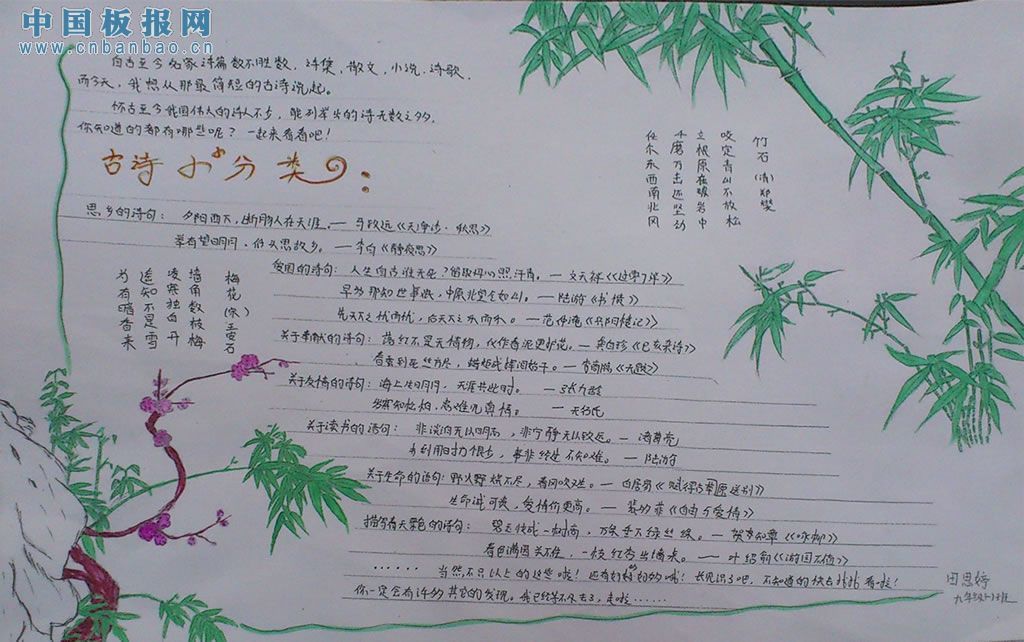 中国板报网
www.cnbanbao.cn
自古至今名家诗篇数不胜数，诗集，散文，小说，诗歌，
而今天，我想从那最简短的古诗说起。
怀古至今我国伟人的诗人不少，能列举出的诗无数之多，
你知道的都有哪些呢？一起来看看吧！
古诗小分类：
竹石（清）郑燮
咬定青山不放松
立根原在破岩中
千磨万击还坚劲
任尔东西南北风
思乡的诗句：夕阳西下，断肠人在天涯。—马致远《天净沙·秋思》
举头望明月，低头思故乡。—李白《静夜思》
梅花（宋）王安石
墙角数枝梅
凌寒独自开
遥知不是雪
为有暗香来
爱国的诗句：人生自古谁无死？留取丹心照汗青。—文天祥《过零丁洋》
早岁那知世事艰，中原北望气如山。—陆游《书愤》
先天下之忧而忧，后天下之乐而乐。—范仲淹《岳阳楼记》
关于奉献的诗句：落红不是无情物，化作春泥更护花。—龚自珍《己亥杂诗》
春蚕到死丝方尽，蜡炬成灰泪始干。—李商隐《无题》
关于友情的诗句：海上生明月，天涯共此时。—张九龄
岁寒知松柏，患难见真情。—无名氏
关于读书的诗句：非淡泊无以明志，非宁静无以致远。—诸葛亮
书到用时方恨少，事非经过不知难。—陆游
关于生命的诗句：野火烧不尽，春风吹又生。—白居易《赋得古草原送别》
生命诚可贵，爱情价更高。—裴多菲《自由与爱情》
描写春天景色的诗句：碧玉妆成一树高，万条垂下绿丝绦。—贺知章《咏柳》
春色满园关不住，一枝红杏出墙来。—叶绍翁《游园不值》
……当然不只以上的这些啦！还有好多好多哦！长见识了吧，不知道的快去找找看啦！
你一定会有许多其它的发现。我已经等不及去了，走啦……
田思婷